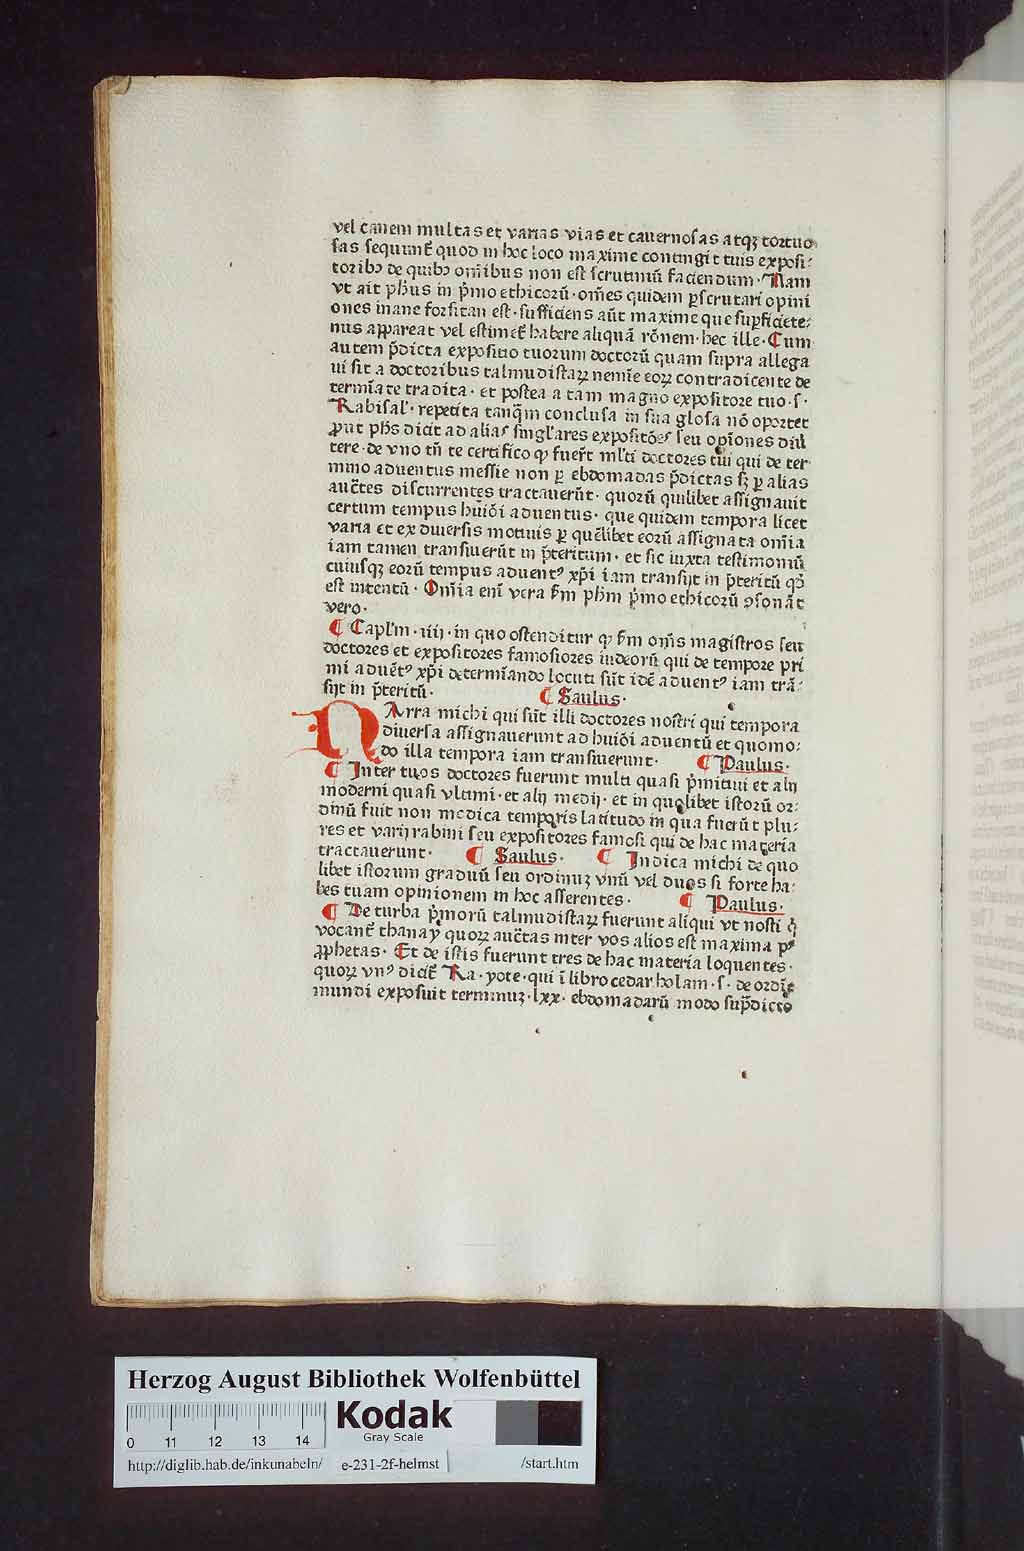 vel canem multas et varias vias et cauernosas atqꝫ tortuo
sas sequunt᷑ quod in hoc loco maxime contingit tuis exposi⸗
toribꝰ de quibꝰ om̄ibus non est scrutiniū faciendum · Nam
vt ait ph̄us in p̄mo ethicorū · om̄es quidem ꝑscrutari opini
ones inane forsitan est · sufficiens aūt maxime que suꝑficiete⸗
nus appareat vel estimet᷑ habere aliquā rōnem · hec ille · Cum
autem p̄dicta expositio tuorum doctorū quam supra allega
ui sit a doctoribus talmudistaꝝ nemīe eoꝝ contradicente de
termīate tradita · et postea a tam magno expositore tuo · s ·
Rabi sal᷑ · repetita tanq̄m conclusa in sua glosa nō oportet
ꝓut ph̄s dicit ad alias singl᷑ares expositōes seu opiōnes diu̅
tere · de vno tn̄ te certifico ꝙ fuer̄t ml᷑ti doctores tui qui de ter
mino aduentus messie non ꝑ ebdomadas p̄dictas sꝫ ꝑ alias
auc̄tes discurrentes tractauerūt · quorū quilibet assignauit
certum tempus hui᷒ōi aduentus · que quidem tempora licet
varia et ex diuersis motiuis ꝑ quēlibet eorū assignata om̄ia
iam tamen transiuerūt in p̄teritum · et sic iuxta testimoniū
cuiusqꝫ eorū tempus aduentꝰ xp̄i iam transijt in p̄teritū qḋ
est intentū · Om̄ia enī vera s̄m ph̄m p̄mo ethicorū ↄsonāt
vero ·
¶ Capl᷑m · iiij · in quo ostenditur ꝙ s̄m om̄s magistros seu
doctores et expositores famosiores iudeorū qui de tempore pri
mi aduētꝰ xp̄i determīando locuti sūt idē aduentꝰ iam trā⸗
sijt in p̄teritū · ¶ Saulus ·
NArra michi qui sūt illi doctores nostri qui tempora
diuersa assignauerunt ad hui᷒ōi aduentū et quomo⸗
do illa tempora iam transiuerunt · ¶ Paulus ·
¶ Inter tuos doctores fuerunt multi quasi p̄mitiui et alij
moderni quasi vltimi · et alij medij · et in quolibet istorū or⸗
dinū fuit non modica temporis latitudo in qua fuerūt plu⸗
res et varij rabini seu expositores famosi qui de hac materia
tractauerunt · ¶ Saulus · ¶ Indica michi de quo
libet istorum graduū seu ordinuꝫ vnū vel duos si forte ha⸗
bes tuam opinionem in hoc asserentes · ¶ Paulus ·
¶ De turba p̄morū talmudistaꝝ fuerunt aliqui vt nosti q̇
vocant᷑ thanay quoꝝ auc̄tas inter vos alios est maxima p᷑
ꝓphetas · Et de istis fuerunt tres de hac materia loquentes ·
quoꝝ vnꝰ dicit᷑ Ra · yote · qui ī libro cedar holam · s · de ordīe
mundi exposuit terminuꝫ · lxx · ebdomadarū modo sup̄dicto
Herzog August Bibliothek Wolfenbüttel
0 11 12 13 14
Kodak
Gray Scale
http://diglib.hab.de/inkunabeln/ e-231-2f-helmst /start.htm